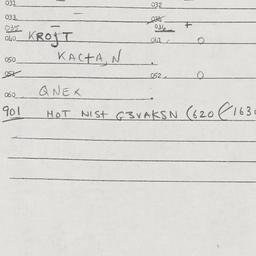 031 032
033 035
035 036 +
040 KROJT 041 0
050 KACTA, N
051 052 0
060 QNEX
901 HOT NIST G3VAKSN (620 (1630